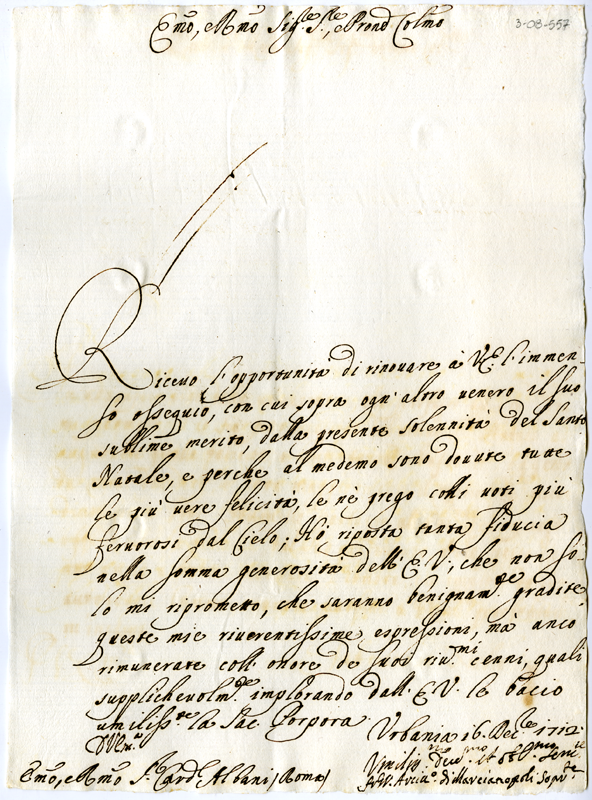 3-08-557
Emo, e Rmo Sig.re S.re, e Pron Colmo
Ricevo l'opportunità di rinovare à V.E. l'immen-
so ossequio, con cui sopra ogn'altro venero il suo
sublime merito, dalla presente solennità del Santo
Natale, e perche al medemo sono dovute tutte
le più vere felicità, le nè prego colli voti più
fervorosi dal Cielo; Hò riposta tanta fiducia
nella somma generosità dell'E.V., che non so-
lo mi riprometto, che saranno benignam.te gradite
queste mie riverentissime espressioni, mà anco
rimunerate coll'onore de suoi riv.mi cenni, quali
supplichevolm.te implorando dall'E.V. le bacio
umiliss.te la Sac. Porpora. Urbania 16 Dec.re 1712
Emo, e Rmo S. Card. Albani (Roma)
Arciv.o di Marcianopoli